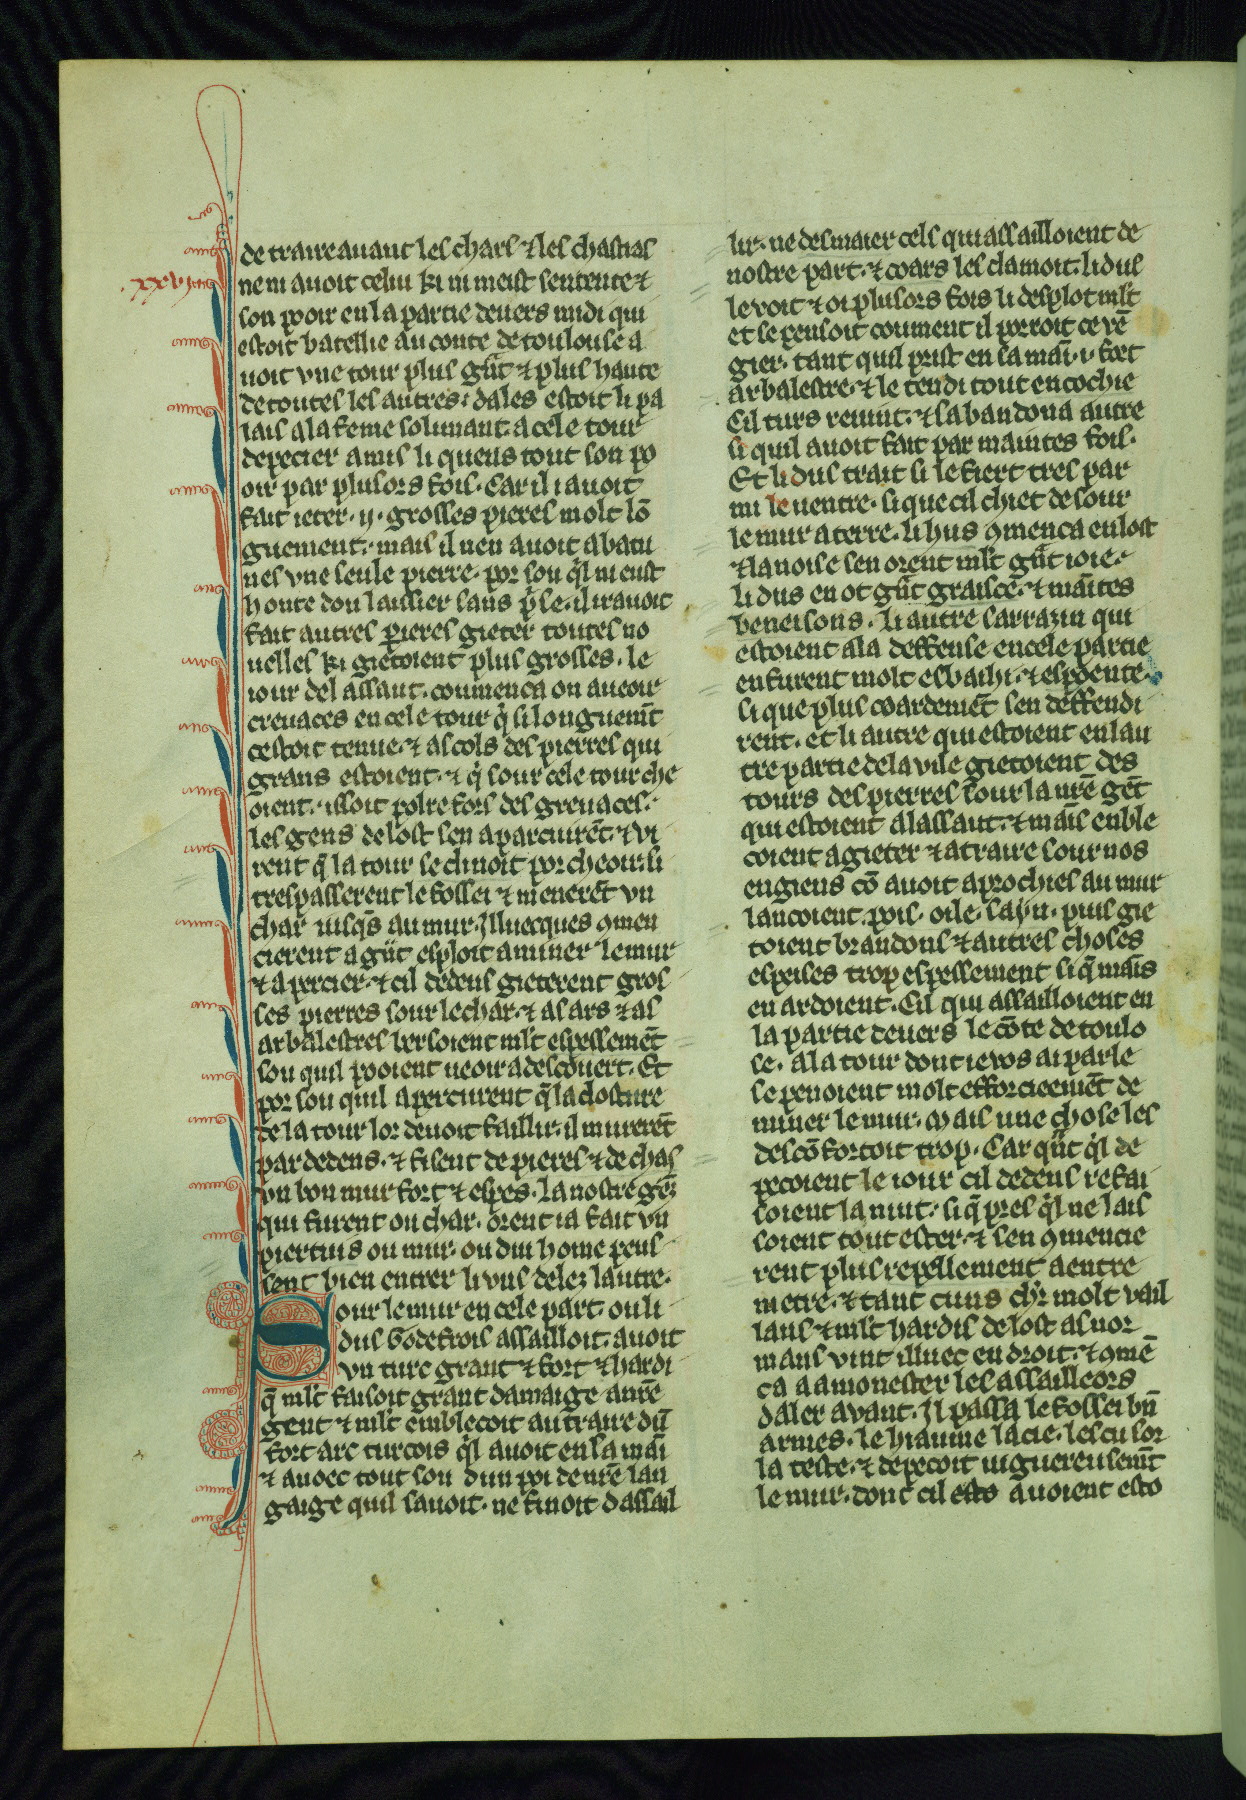 de traire auant les chars ⁊ les chastias
nen i auoit celui ki ni meist sentente ⁊
son pooir en la partie deuers midi qui
estoit batellie au conte de toulouse a
uoit vne tour plus gͣnt ⁊ plus haute
de toutes les autres· dales estoit li pa
lais a la feme solimant· a cele tour
depecier a mis li quens tout son po
oir par plusors fois· Car il i auoit
fait ieter· ij· grosses pieres molt lō
guement· mais il nen auoit abatu
nes vne seule pierre· por sou ql̉ ni eust
honte dou laissier sans p̄se· il i rauoit
fait autres pieres gieter toutes no
uelles ki gietoient plus grosses· le
iour del assaut· coumenca on a ueoir
creuaces en cele tour q̉ si longuemt̄
cestoit tenue· ⁊ as cols des pierres qui
grans estoient· ⁊ q̉ sour cele tour che
oient· issoit polre fors des greuaces·
les gens de lost sen aparciurēt· ⁊ vi
rent q̄ la tour se clinoit por cheoir· si
trespasserent le fossei ⁊ menerēt vn
char iusqͣs au mur· Illuecques 9men
cierent a gͣnt esploit a miner le mur
⁊ a percier· ⁊ cil dedens gieterent gros
ses pierres sour le char· ⁊ as ars ⁊ as
arbalestres bersoient ml̄t espessemēt
sou quil pooient ueoir a descouert· Et
por sou quil apercurent q̄ la closture
de la tour lor deuoit faillir· il murerēt
par dedens· ⁊ fisent de pieres ⁊ de chas
vn bon mur fort ⁊ espes· la nostre gēs
qui furent ou char· orent ia fait vn
piertuis ou mur· ou dui home peus
sent bien entrer li vns delez lautre·
Sour le mur en cele part· ou li
dus Godefrois assailloit· auoit
vn turc grant ⁊ fort ⁊ hardi
q̄ ml̄t faisoit grant damaige a nr̄e
gent ⁊ ml̄t emblecoit au traire dū
fort arc turcois ql̉ auoit en sa maī
⁊ auoec tout sou dun poi de nr̄e lan
gaige quil sauoit· ne finoit dassail
lir· ne desmaier cels qui assailloient de
nostre part· ⁊ coars les clamoit· li dus
le voit ⁊ oi plusors fois li desplot ml̄t
et se pensoit coument il porroit ce vē
gier· tant quil prist en sa maī· i· fort
arbalestre· ⁊ le tendi tout encochie
Cil turs reuint· ⁊ sabandona autre
si quil auoit fait par maintes fois·
Et li dus trait si le fiert tres par
mi le uentre· si que cil chiet de sour
le mur a terre· li hus 9menca en lost
⁊ la noise sen orent ml̄t gͣnt ioie·
li dus en ot gͣnt graisce· ⁊ maītes
beneisons· li autre sarrazin qui
estoient a la deffense en cele partie
en furent molt esbaihi· ⁊ espoente·
si que plus coardemēt sen deffendi
rent· et li autre qui estoient en lau
tre partie de la vile gietoient des
tours des pierres sour la nr̄e gēt
qui estoient a lassaut· ⁊ maīs en ble
coient a gieter ⁊ a traire sour nos
engiens cō auoit aprochies au mur
lancoient· pois· oile· sayn· puis gie
toient brandons ⁊ autres choses
esprises trop espessement si q̄ maīs
en ardoient· Cil qui assailloient en
la partie deuers le cōte de toulo
se· a la tour dont ie vos ai parle
se penoient molt efforcieemēt de
miner le mur· Mais une chose les
descōfortoit trop· Car qͣnt ql̉ de
pecoient le iour cil dedens refai
soient la nuit· si q̄ pres ql̉ ne lais
soient tout ester· ⁊ sen 9mencie
rent plus repellement a entre
metre· ⁊ tant cuns chr̄ molt vail
lans ⁊ ml̄t hardis de lost as nor
mans vint illuec en droit· ⁊ 9mē
ca a amonester les assailleors
daler avant· Il passa le fossei bn̄
armes· le hiaume lacie· lescu sor
la teste· ⁊ depecoit uiguereusemt̄
le mur· dont cil esto auoient esto